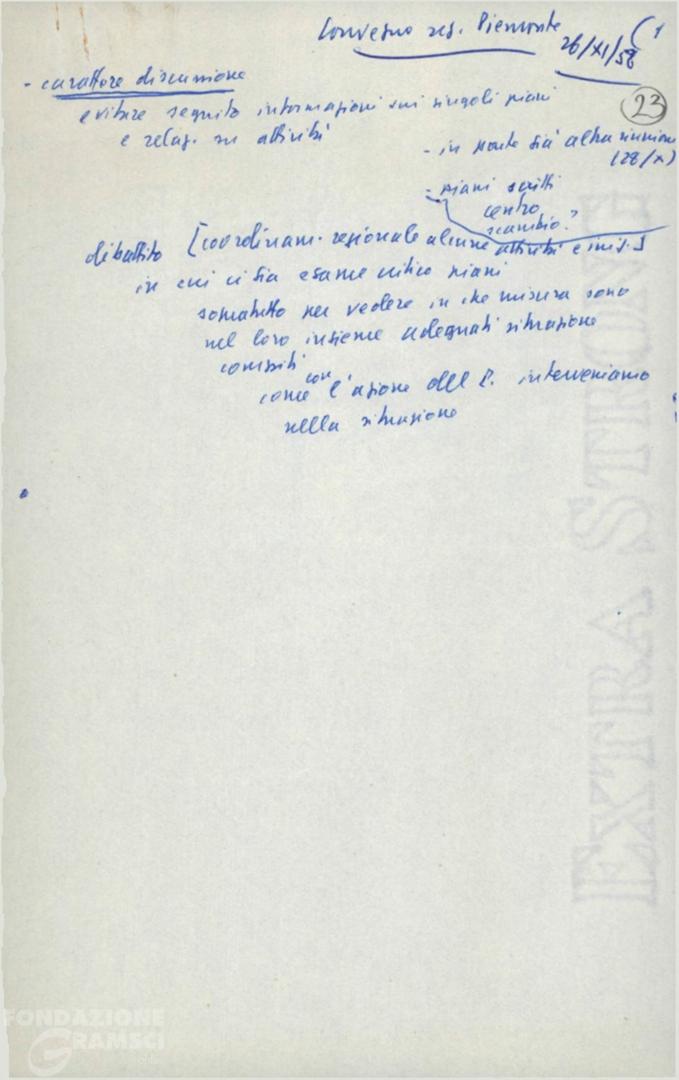 Convegno reg. Piemonte
26/XI/58
(1
23
- carattere discussione
evitare seguito informazioni sui singoli piani
e relaz. su attività
- in parte già altra riunione
(28/X)
- piani scritti
centro
scambio?
dibattito [coordinam. regionale alcune attività e iniz.]
in cui vi sia esame critico piani
soprattutto per vedere in che misura sono
nel loro insieme adeguati situazione
compiti
come con l'azione del P. interveniamo
nella situazione
EXTRA STRONG
FONDAZIONE
GRAMSCI